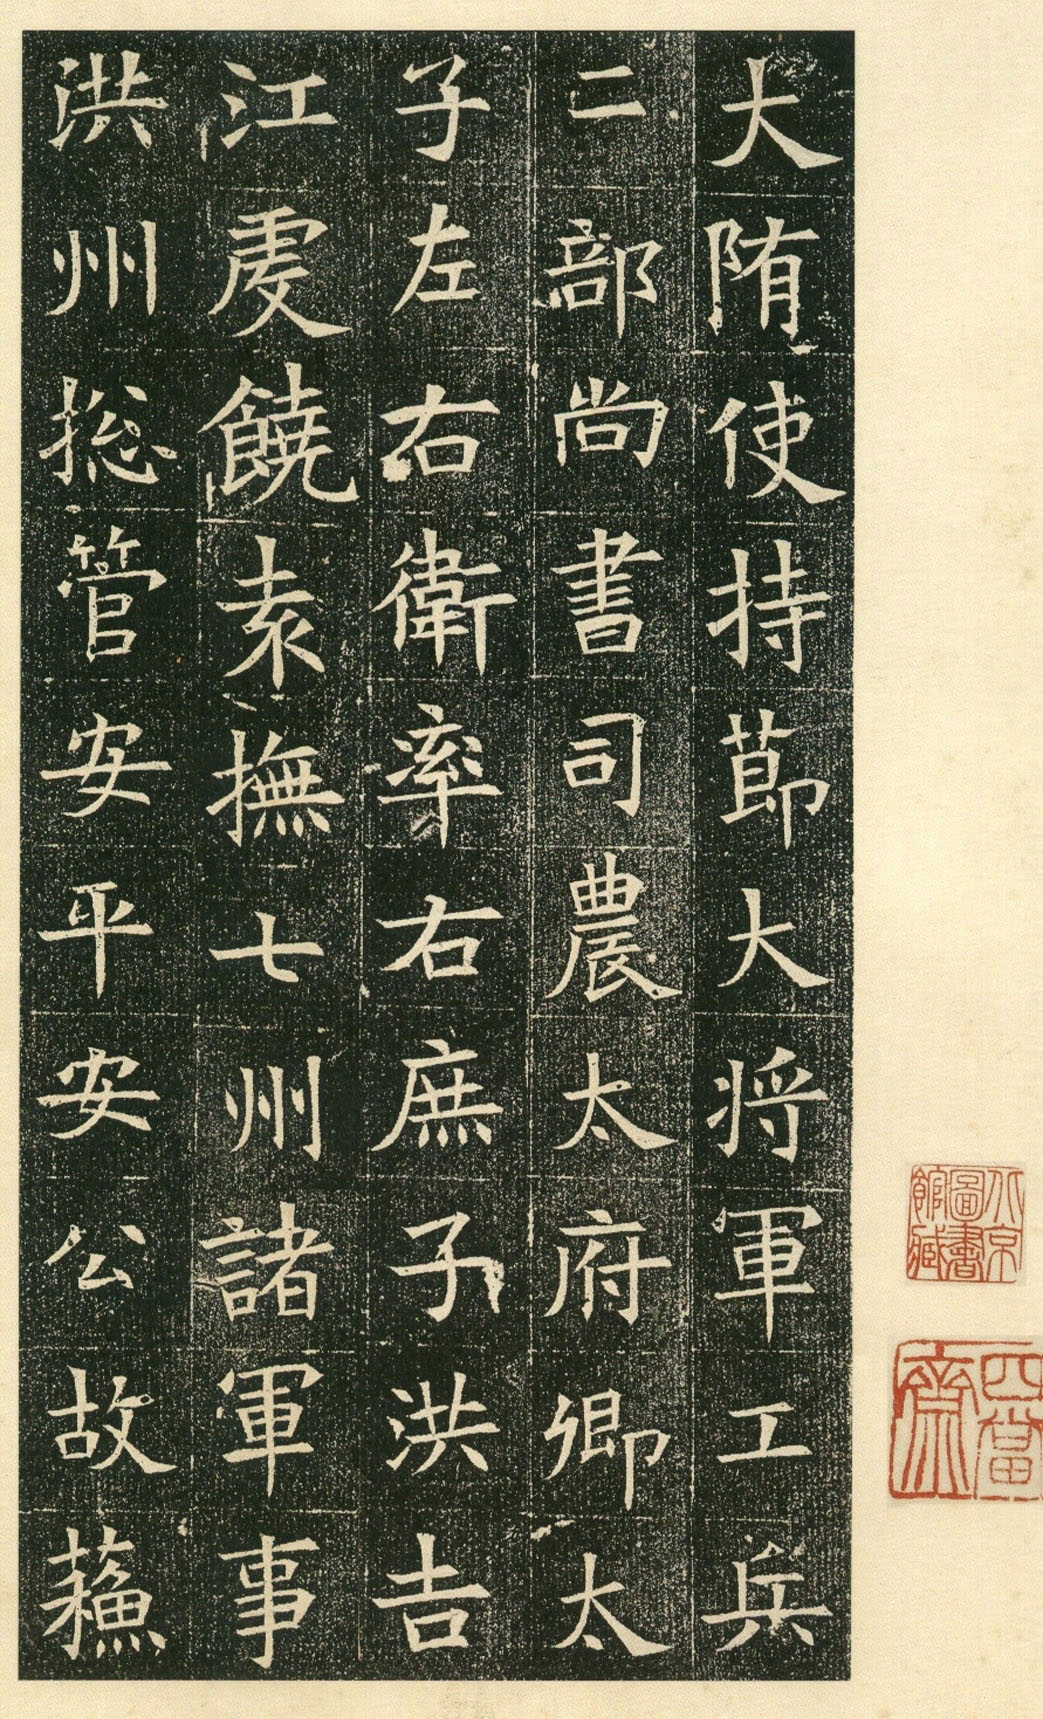 大隋使持節大將軍工兵
二部尚書司農太府卿太
子左右衛率右庶子洪吉
江虔饒袁撫七州諸軍事
洪州総管安平安公故蘓
北京圖書館藏
四當齋